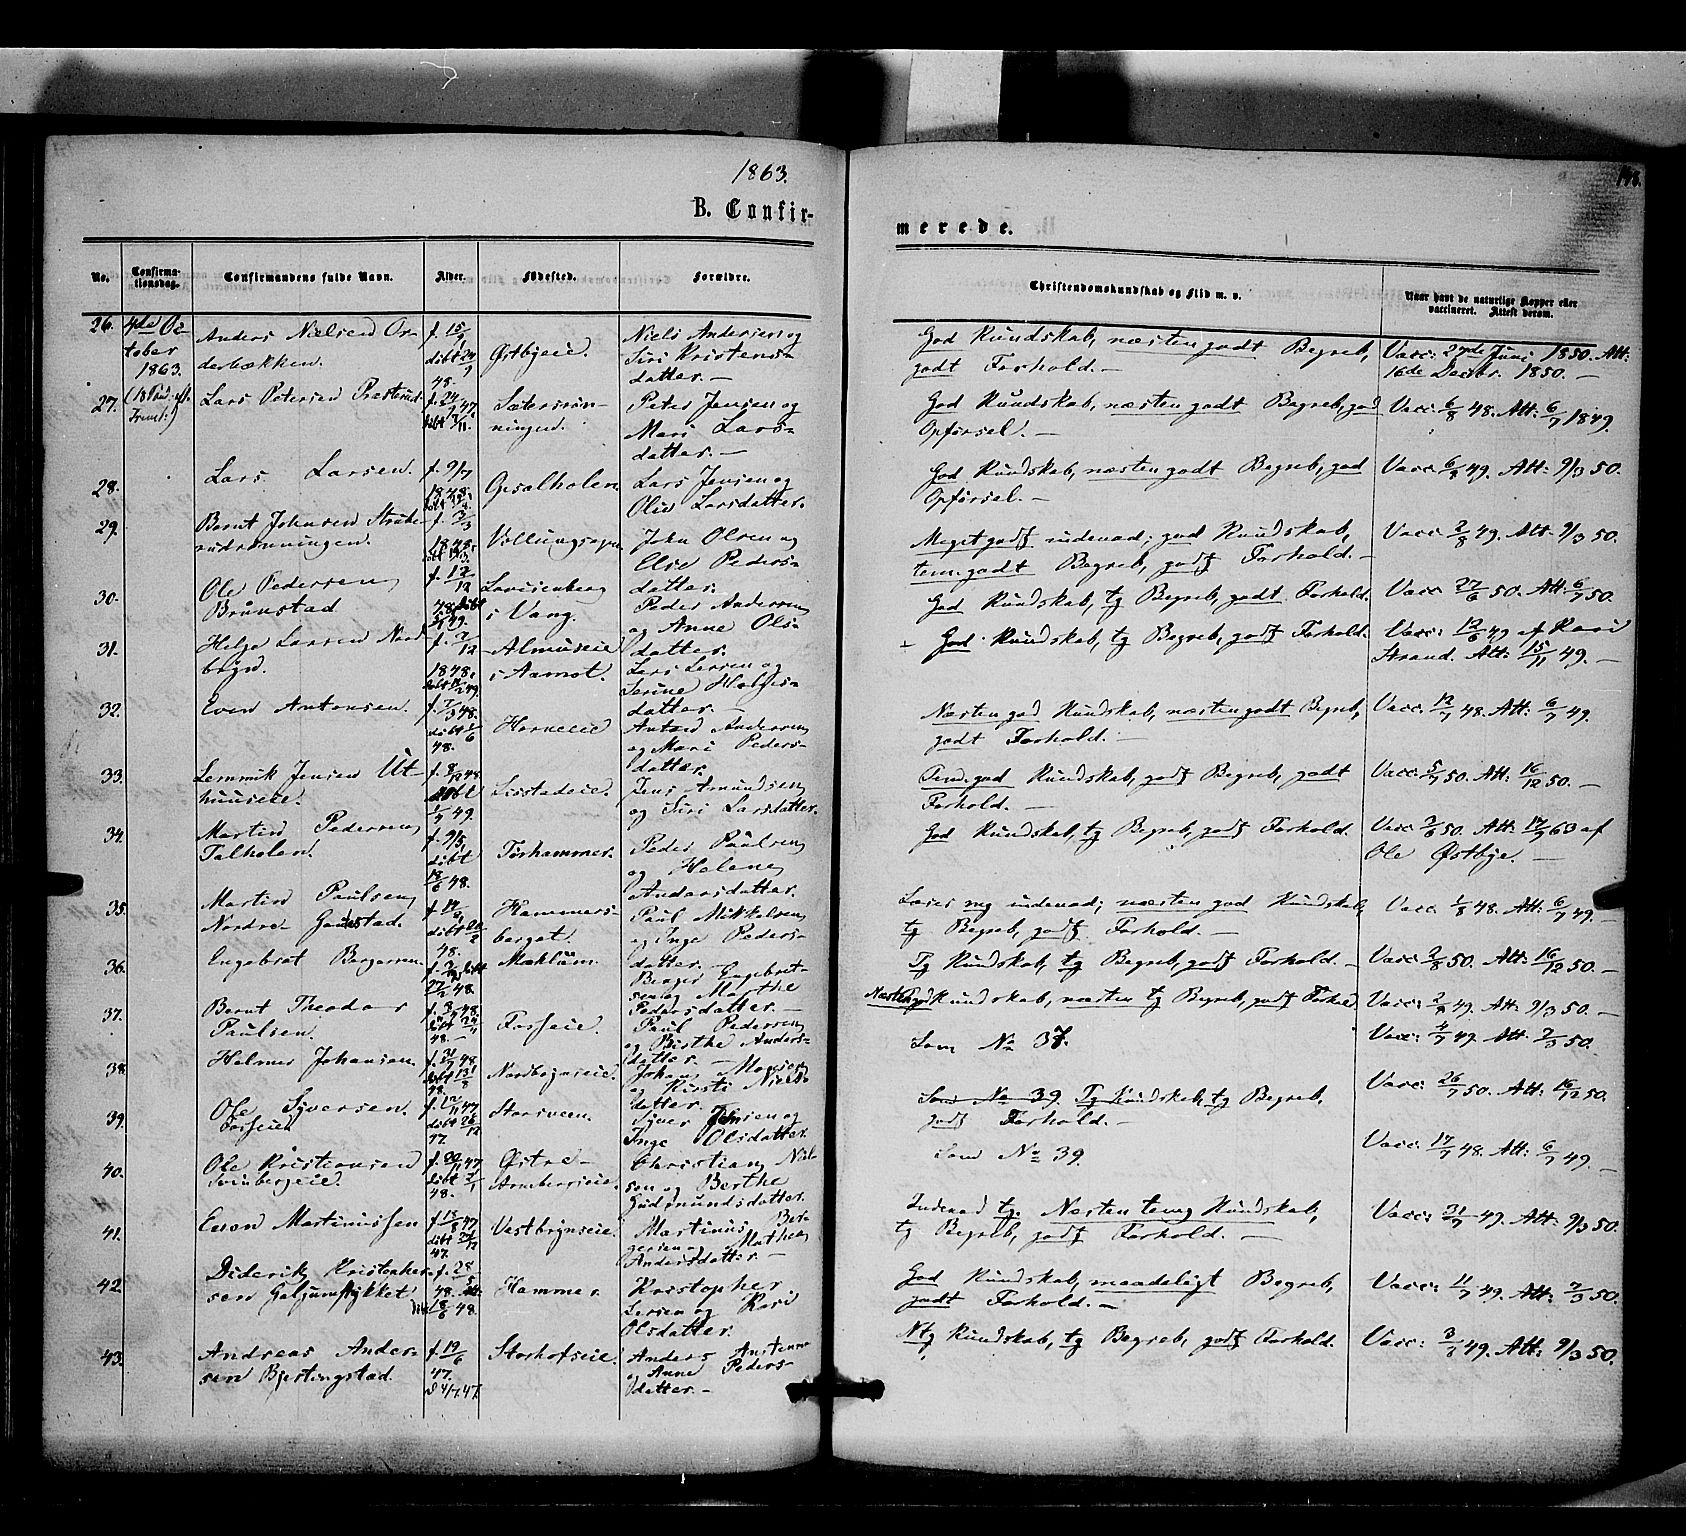 1863.
148.
B. Confir-
merede.
No. Confirma-tionsdag. Confirmandens fulde Navn. Alder. Fødested. Forældre.
Christendomskundskab og Flid m. v. Naar havt de naturlige Kopper eller vaccineret. Attest derom.
26. 4de Oc-
tober
1863.
Anders Nielsen On-
debækken.
f. 15/9
48.
Østbyeie.
Niels Andersen og
Siri Kristens-
datter. —
God Kundskab, næsten godt Begreb,
godt Forhold. —
Vacc: 27de Juni 1850. Att:
16de Decbr. 1850. —
27.
Lars Petersen Præsterud
Sætersrøn-
ningen.
Peter Jensen og
Mari Lars-
datter. —
God Kundskab, næsten godt Begreb, god
Opførsel. —
Vacc: 6/8 48. Att: 6/7 1849.
28. Lars Larsen. f. 9/7
1848.
Gjsalholen.
Lars Jensen og
Olia Larsdatter.
God Kundskab, næsten godt Begreb, god
Opførsel. —
Vacc: 49. Att: 9/3 50.
29. Bernt Johnsen Strube-
rudrønningen.
f. 3/3
1848.
John Olsen og
Else Peders-
datter.
Meget godt indenad; god Kundskab,
tem. godt Begreb, godt Forhold. —
Vacc: 2/8 49. Att: 9/3 50.
30. Ole Pedersen
Brunstad
f. 12/12
48.
Lovisenberg
i Vang.
Peder Andersen
og Anne Ols-
datter.
God Kundskab, tg Begreb, godt Forhold.
Vacc: 27/6 50. Att: 6/7 50.
31. Helge Larsen Nord
bøyn.
f. 2/12
1848.
Almuseie
i Aamot.
Lars Larsen og
Serine Helges-
datter. —
God Kundskab, tg Begreb, godt Forhold.
Vacc: 12/6 49 af Kari
Strand. Att: 15/11 49. —
32. Even Antonsen.
48.
Horneeie
Anton Andersen
og Mari Peders-
datter.
Næsten god Kundskab, næsten godt Begreb,
godt Forhold. —
Vacc: 12/7 48. Att: 6/7 49.
33. Lemmik Jensen Ut-
huuseie.
Sisstadeie.
Jens Amundsen
og Siri Larsdatter.
Tem. god Kundskab, godt Begreb, godt
Forhold. —
Vacc: 5/7 50. Att: 16/12 50. —
34. Martin Pedersen
Talholen.
f. 9/5
døbt
18/6 48.
Torhammer.
Peder Paulsen
og Helene
Andersdatter.
God Kundskab, tg Begreb, godt Forhold.
Vacc: 50. Att: 17/9 63 af
Ole Østbye. —
35. Martin Paulsen
Nordre-
48.
Hammers-
berget.
Paul Mikkelsen
og Inge Peders-
datter. —
Læser mg indenad; næsten god Kundskab,
tg Begreb, godt Forhold. —
Vacc: 1/8 48. Att: 6/7 49. —
36. Engebret Bergersen
48.
Moklum
Berger Engebret-
sen og Marthe
Pedersdatter. —
Tg Kundskab, tg Begreb, godt Forhold. —
Vacc: 2/8 50. Att: 16/12 50. —
37. Bernt Theodor
Paulsen.
48. —
Forseie.
Paul Pedersen
og Birthe Anders-
datter. —
Næsten god Kundskab, næsten tg Begreb, godt Forhold
Vacc: 49. Att: 9/3 50. —
38. Helmer Johansen.
48.
Nordbøynseie.
Johan Monsen
og Kirsti Niels-
datter.
Som No 37.
Vacc: 4/7 49. Att: 2/3 50.
39. Ole Syversen.
Forseie
47.
Storsveen.
Syver Jensen og
Inge Olsdatter.
Som No 39. Tg Kundskab, tg Begreb,
godt Forhold. —
Vacc: 26/7 50. Att: 16/12 50.
40. Ole Kristiansen
Svinbergeie.
48.
Østre-
Arnebergeie.
Christian Niel-
sen og Berthe
Gudmundsdatter.
Som No 39.
Vacc: 17/7 48. Att: 6/7 49. —
41. Even Martinussen
47.
Vestbynseie.
Martinus Ber-
gersen og Mathea
Andersdatter —
Indenad tg. Næsten temg Kundskab,
tg Begreb, godt Forhold. —
Vacc: 31/7 49. Att: 9/3 50.
42. Diderik Kristopher-
sen Galgumstykket
f. 28/5
48.
18/6 48.
Hammer.
Kristopher
Larsen og Kari
Olsdatter.
God Kundskab, maadeligt Begreb,
godt Forhold. —
Vacc: 11/7 49. Att: 2/3 50.
43. Andreas Ander-
sen Bjertingstad.
f. 19/6
47.
d 4/7 47.
Storhofseie.
Anders
og Anne Peders-
datter. —
Ntg Kundskab, tg Begreb, godt Forhold.
Vacc: 3/8 49. Att: 9/3 50.